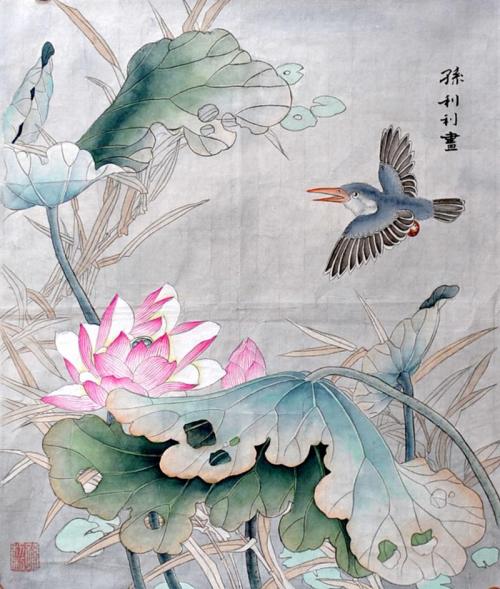 孫利利畫